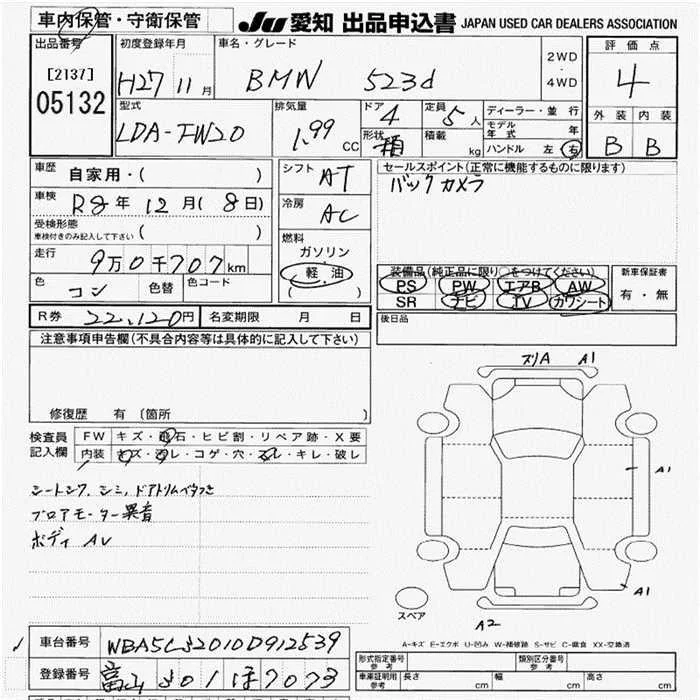 車内保管・守衛保管 JU 愛知 出品申込書 JAPAN USED CAR DEALERS ASSOCIATION
出品番号 初度登録年月 車名・グレード 2WD・4WD 評価点
[2137] 05132 H27 11月 BMW 523d 4
型式 排気量 ドア 4 定員 5人 ディーラー・並行 外装 内装
LDA-FW20 1.99 CC 形状 箱 積載 kg モデル年式 年 B B
ハンドル 左 右
車歴 自家用・( ) シフト AT セールスポイント(正常に機能するものに限ります)
車検 R8年 12月(8日) 冷房 AC バックカメラ
受検形態 車検付きのみ記入して下さい ( )
走行 9万0千707km 燃料 ガソリン 軽油 ( )
装備品(純正品に限り○をつけてください) 新車保証書
PS PW エアB AW 有・無
SR ナビ TV カワシート
色 コン 色替 色コード
R券 22,120円 名変期限 月 日 後日品
注意事項申告欄(不具合内容等は具体的に記入して下さい)
修復歴 有 (箇所 )
検査員記入欄 FW キズ・飛石・ヒビ割・リペア跡・X要
内装 キズ・汚レ・コゲ・穴・スレ・キレ・破レ
シートシワ、シミ、ドアトリムベタつき
ブロアモーター異音
ボディ AU
ズリA A1
A1
A1
スペア
A2
A-キズ E-エクボ U-凹み W-補修跡 S-サビ C-腐食 XX-交換済
車台番号 WBA5C
登録番号 富山 301 ほ7073
形式指定番号 参考 類別区分番号 参考
車庫証明用 参考 長さ cm 幅 cm 高さ cm